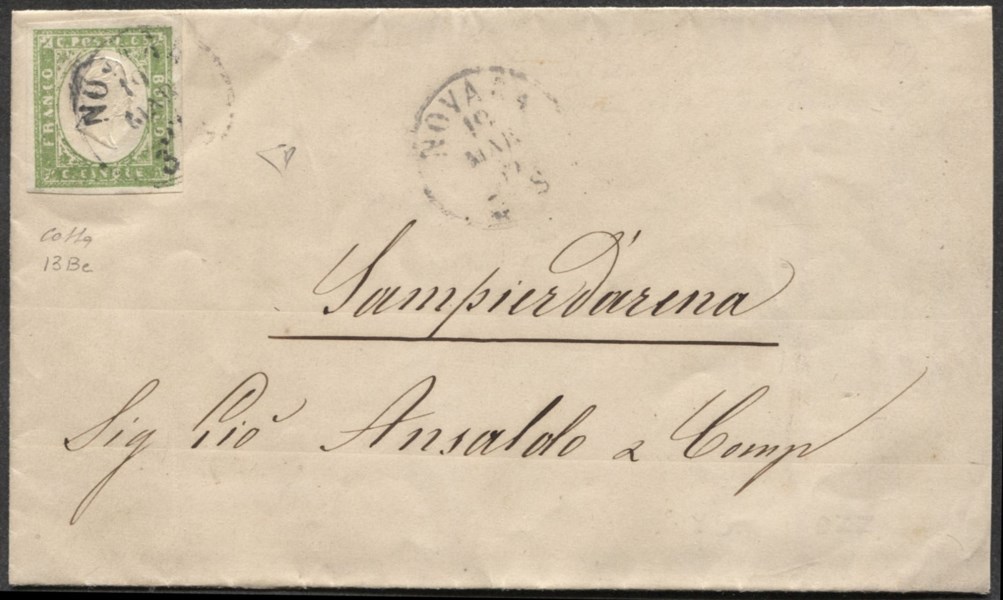 C. POSTE
FRANCO
BOLLO
C. CINQUE
NO
NOVARA
19
MAR
S
Cotta
13Be
Sampierd'arena
Sig Gio Ansaldo & Comp